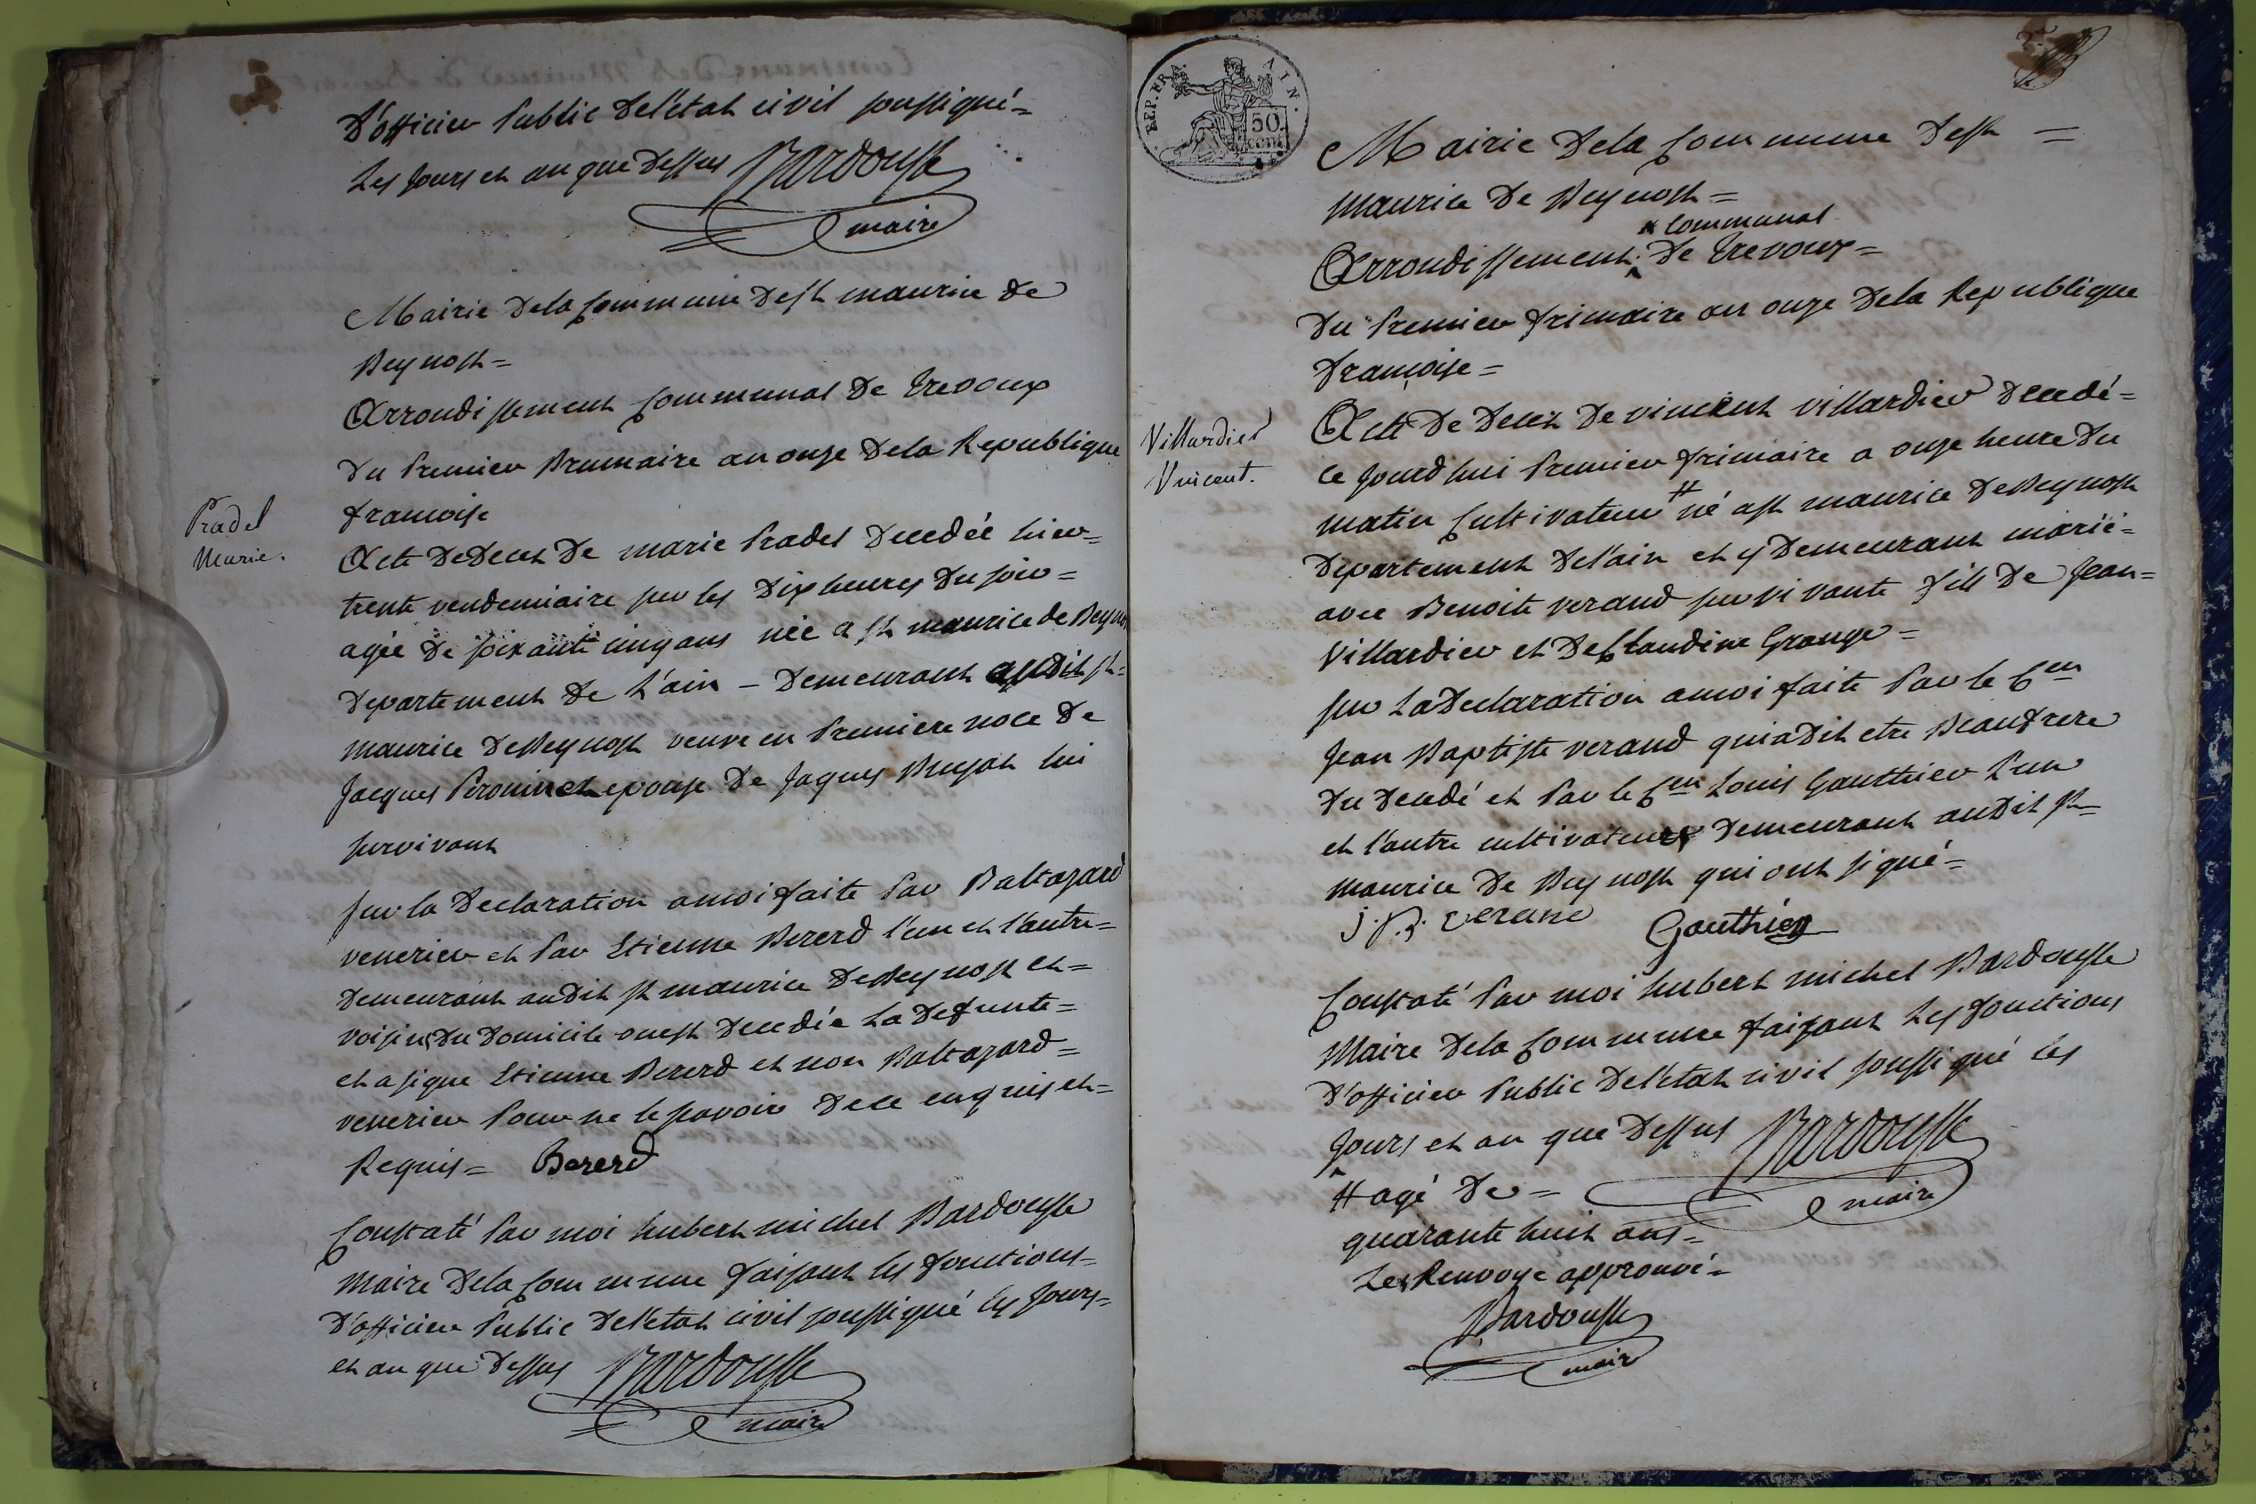 D'officier Public De l'état civil soussigné=
Les jours et an que Dessus Bardousse
maire
Mairie Dela Commune De st maurice de
Beynost=
Arrondissement Communal De Trevoux
Du Premier Brumaire an onze Dela Republique
francoise
Pradel
Marie.
Acte De Deces De marie Pradel Decedée hier=
trente vendemiaire sur les Dix heures Du soir=
agée De soixante cinq ans née a st maurice de Beynost
Departement De L'ain - Demeurant audit st=
maurice De Beynost veuve en Premiere noce De
Jacques Perouin et epouse De Jaques Bujat lui
survivant
sur la Declaration a moi faite Par Baltazard
venerier et Par Etienne Bererd l'un et l'autre=
Demeurant audit st maurice De Beynost et=
voisins Du Domicile ou est Decedée La Defunte=
et a signe Etienne Bererd et non Baltazard=
venerier Pour ne le savoir De ce enquis et=
Requis= Bererd
Constaté Par moi hubert michel Bardousse
Maire Dela Commune faisant les fonctions=
D'officier Public De l'etat civil soussigné les jours=
et an que Dessus Bardousse
maire
REP. FRA. AIN.
50
cent
2e
Mairie Dela Commune De st =
maurice De Beynost=
x Communal
Arrondissement De Trevoux=
Du Premier frimaire an onze Dela Republique
francoise=
Villardier
Vincent.
Acte De Deces De vincent villardier Decedé=
ce jourd'hui Premier frimaire a onze heure Du
matin Cultivateur # né a st maurice De Beynost
Departement De l'ain et y Demeurant marié=
avec Benoite verand survivante fils De Jean=
Villardier et De Claudine Grange=
sur La Declaration a moi faite Par le Cen
Jean Baptiste verand qui a Dit etre Beaufrere
Du Decedé et Par le Cen Louis Gauthier l'un
et l'autre cultivateurs Demeurant audit st=
maurice De Beynost qui ont signé=
j. B. verane Gauthier
Constaté Par moi hubert michel Bardousse
Maire Dela Commune faisant Les fonctions
D'officier Public De l'etat civil soussigné les
jours et an que Dessus Bardousse
maire
# agé De=
quarante huit ans=
Les Renvoye approuvé=
Bardousse
maire